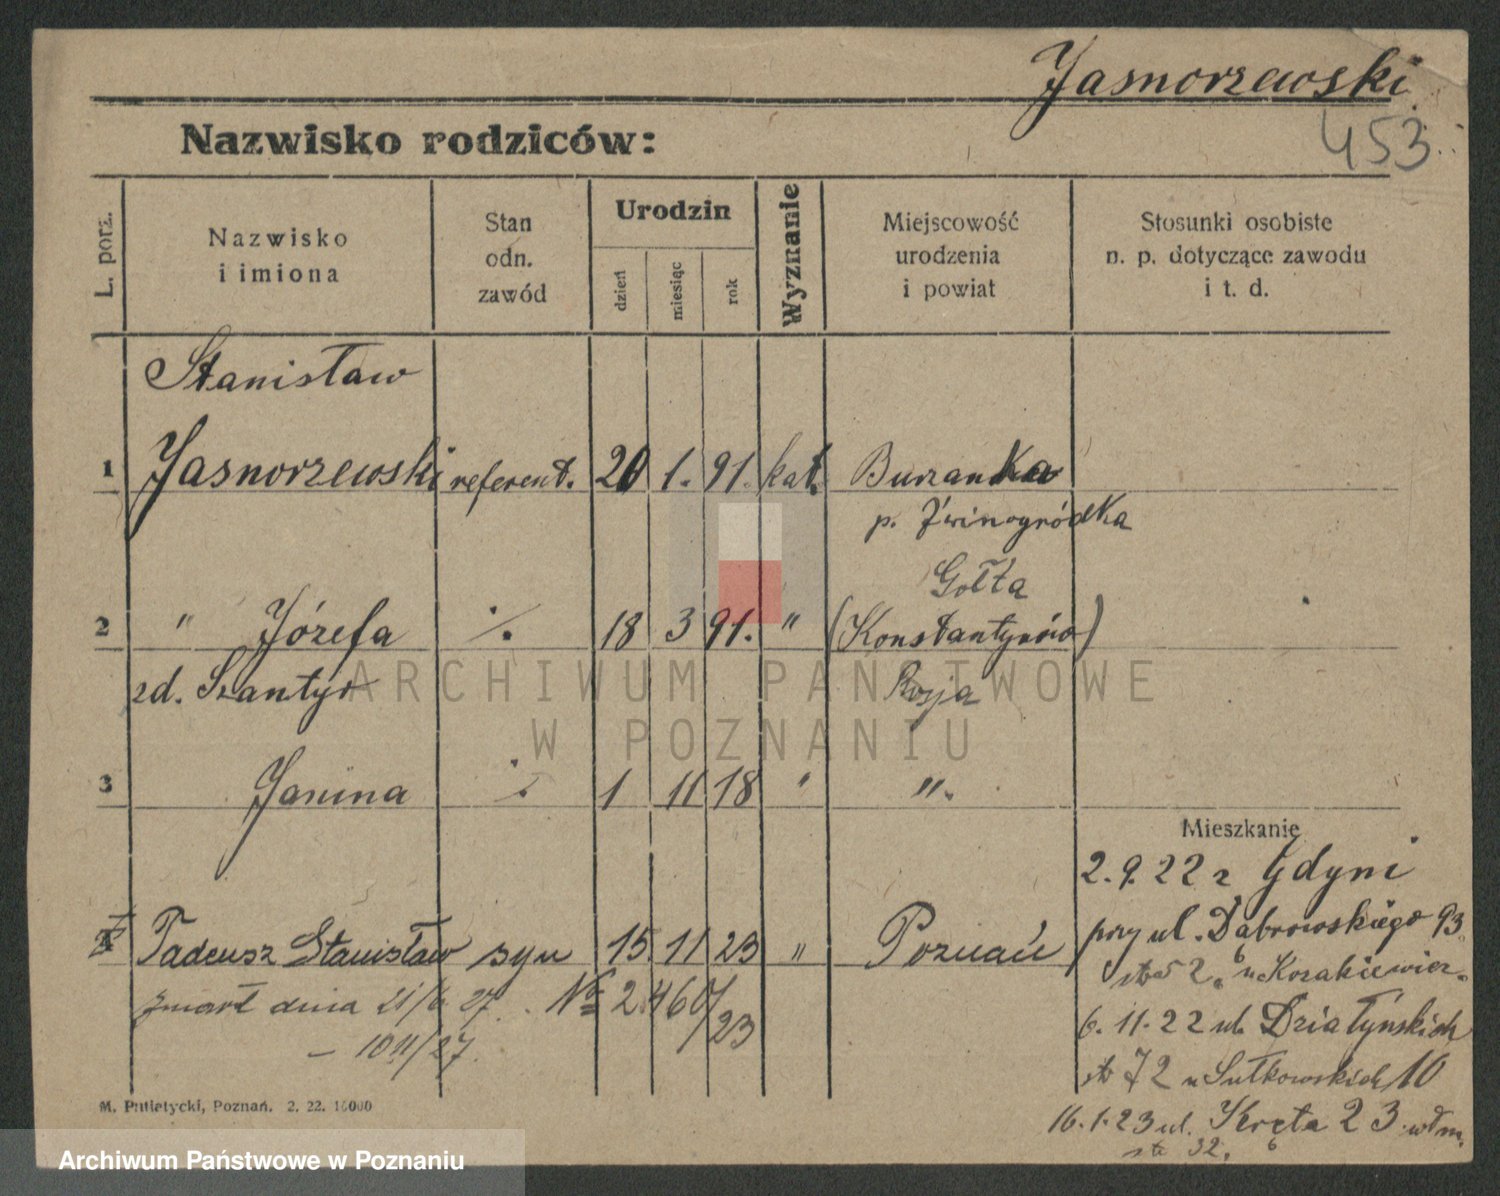 Jasnorzewski
453
Nazwisko rodziców:
L. porz.
Nazwisko
i imiona
Stan
odn.
zawód
Urodzin
dzień
miesiąc
rok
Wyznanie
Miejscowość
urodzenia
i powiat
Stosunki osobiste
n. p. dotyczące zawodu
i t. d.
Stanisław
1 Jasnorzewski referent. 20 1. 91. kat. Burzanka
p. Zwinogródka
Gołta
2 " Józefa ./. 18 3 91. " (Konstantynów)
zd. Szantyr Rosja
3 Janina ./. 1 11 18 " ".
Mieszkanie
2. 9. 22 z Gdyni
przy ul. Dąbrowskiego 93
4 Tadeusz Stanisław syn 15. 11 23 " Poznań
str 52 u Kozakiewicz
zmarł dnia 21/6 27. No 2460/23
6. 11. 22 ul. Działyńskich
— 1011/27.
str 72 u Sułkowskich 10
16. 1. 23 ul. Kręta 23 włm.
str 32,
M. Putiatycki, Poznań. 2. 22. 10000
ARCHIWUM PAŃSTWOWE
W POZNANIU
Archiwum Państwowe w Poznaniu